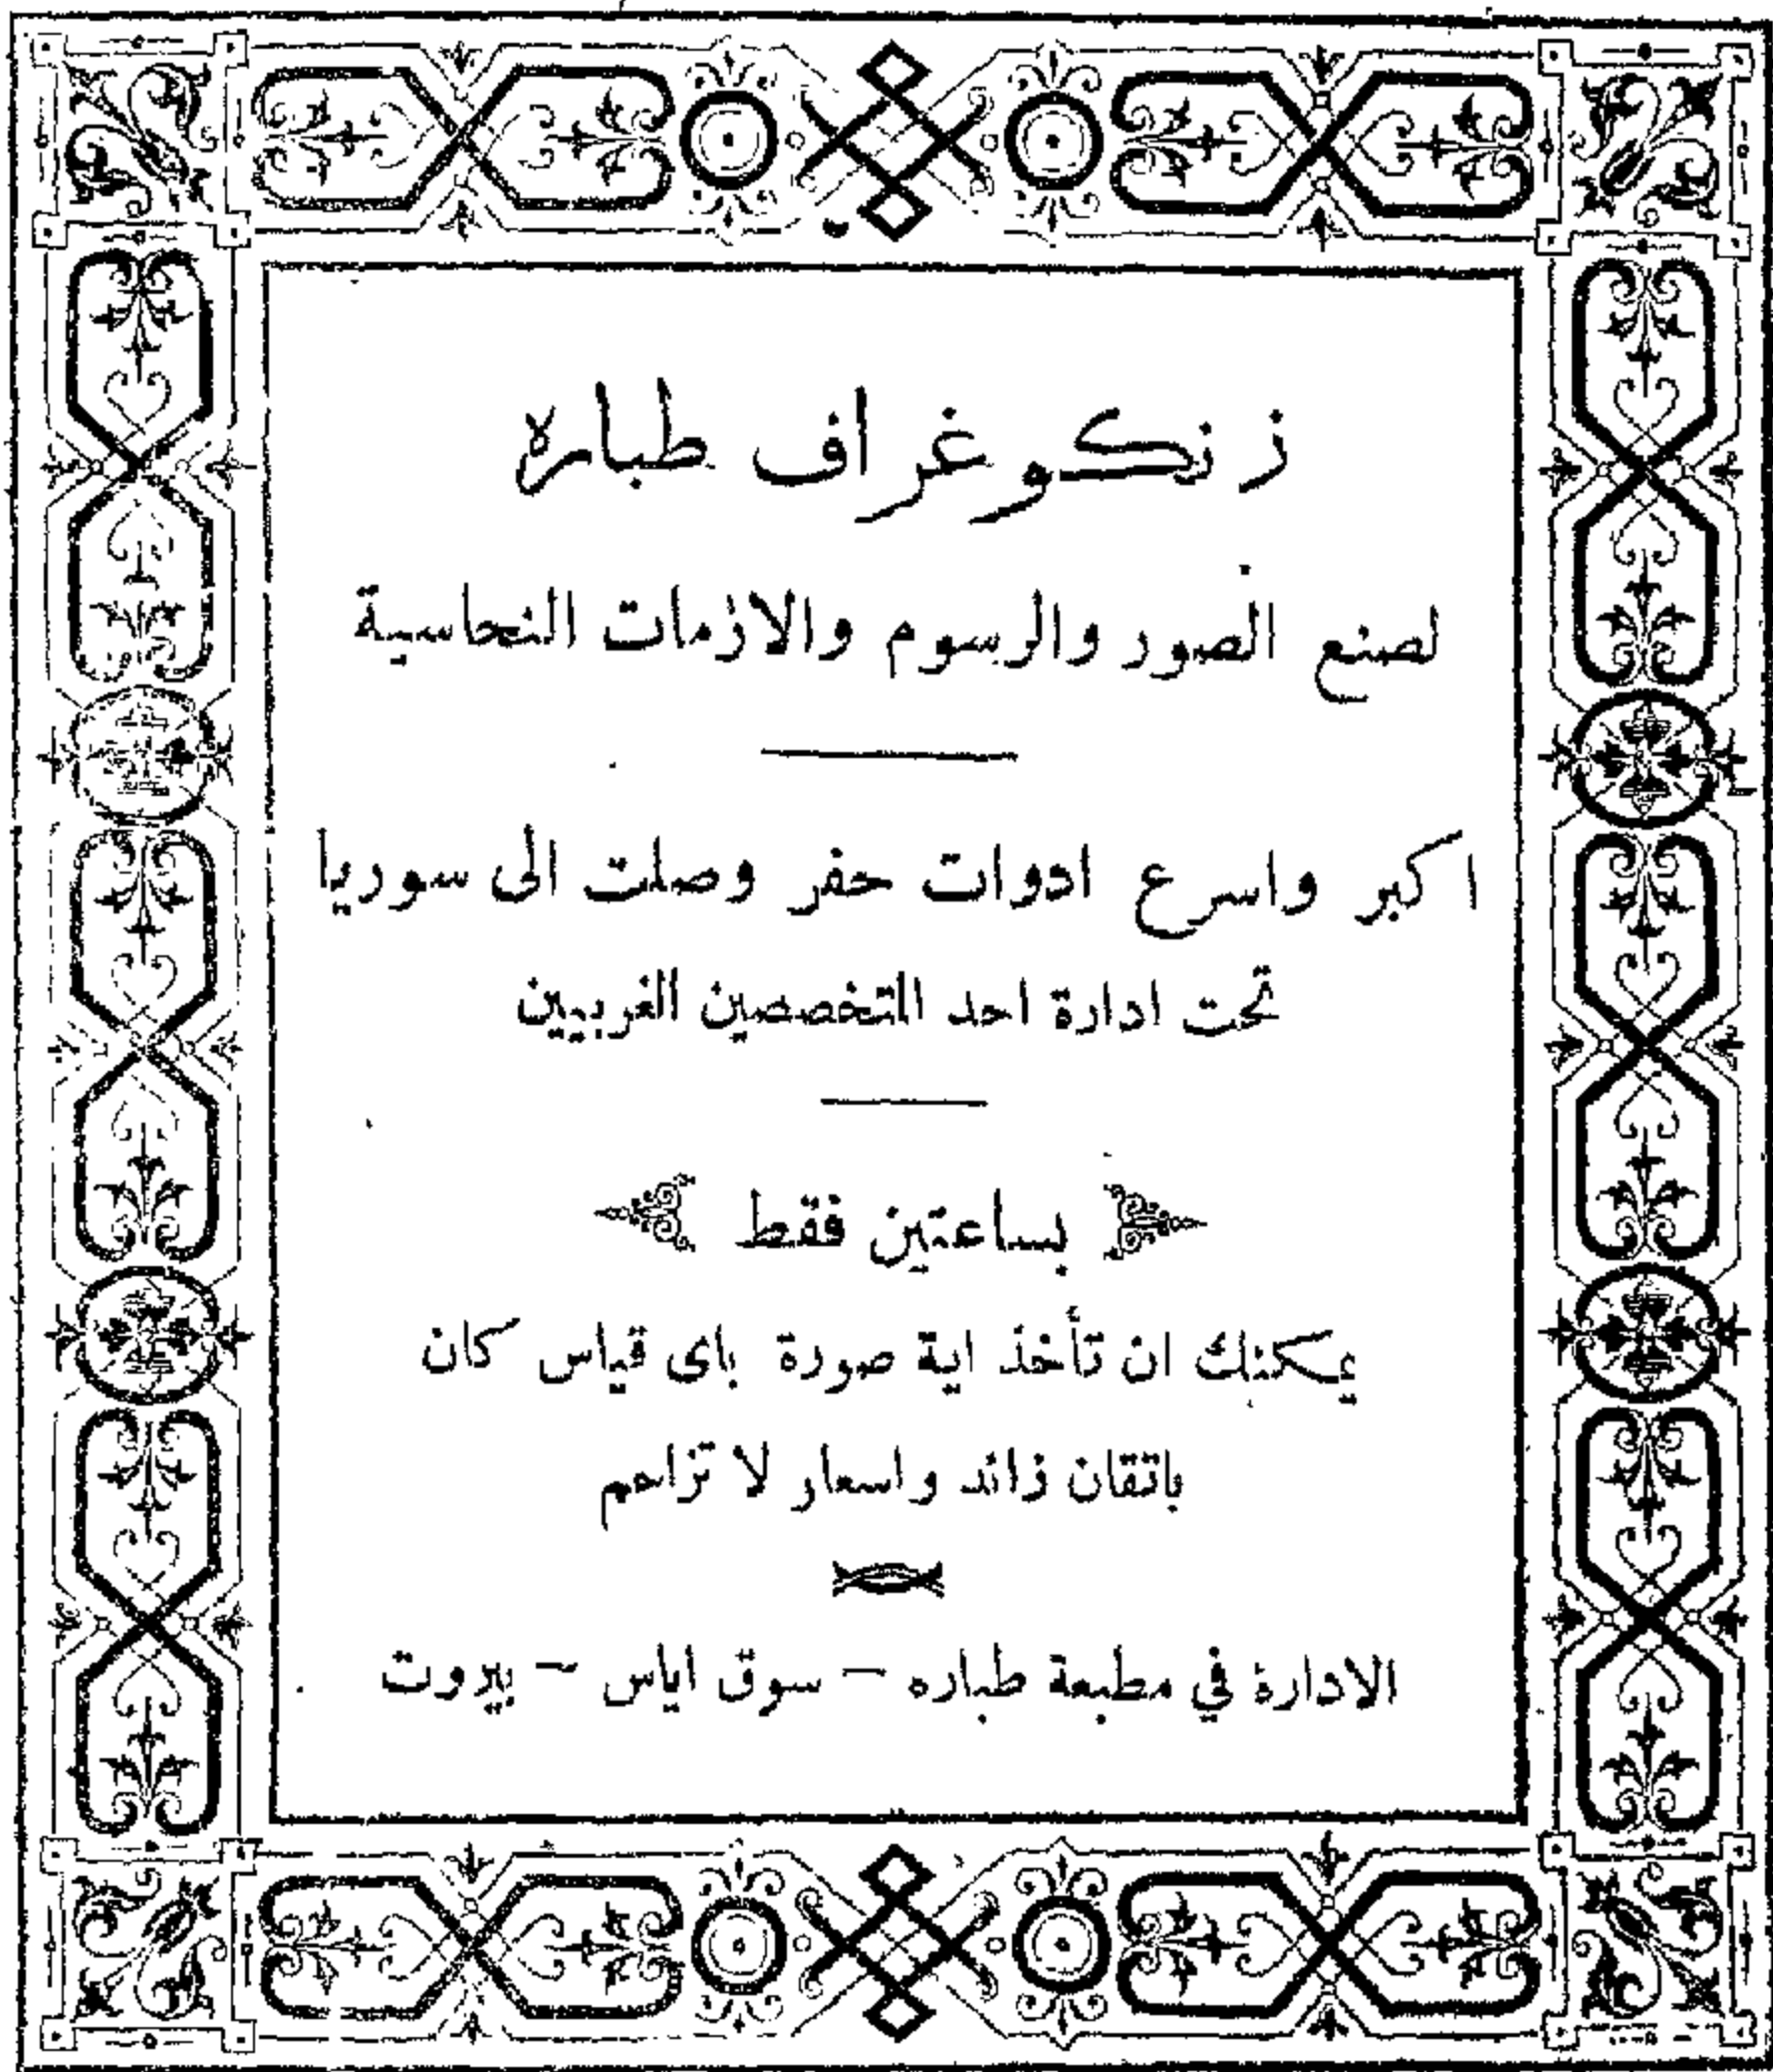 زنكوغراف طباره
لصنع الصور والرسوم والازمات النحاسية
اكبر واسرع ادوات حفر وصلت الى سوريا
تحت ادارة احد المتخصصين الغربيين
بساعتين فقط
يمكنك ان تأخذ اية صورة باى قياس كان
باتقان زائد واسعار لا تزاحم
الادارة في مطبعة طباره — سوق اياس — بيروت